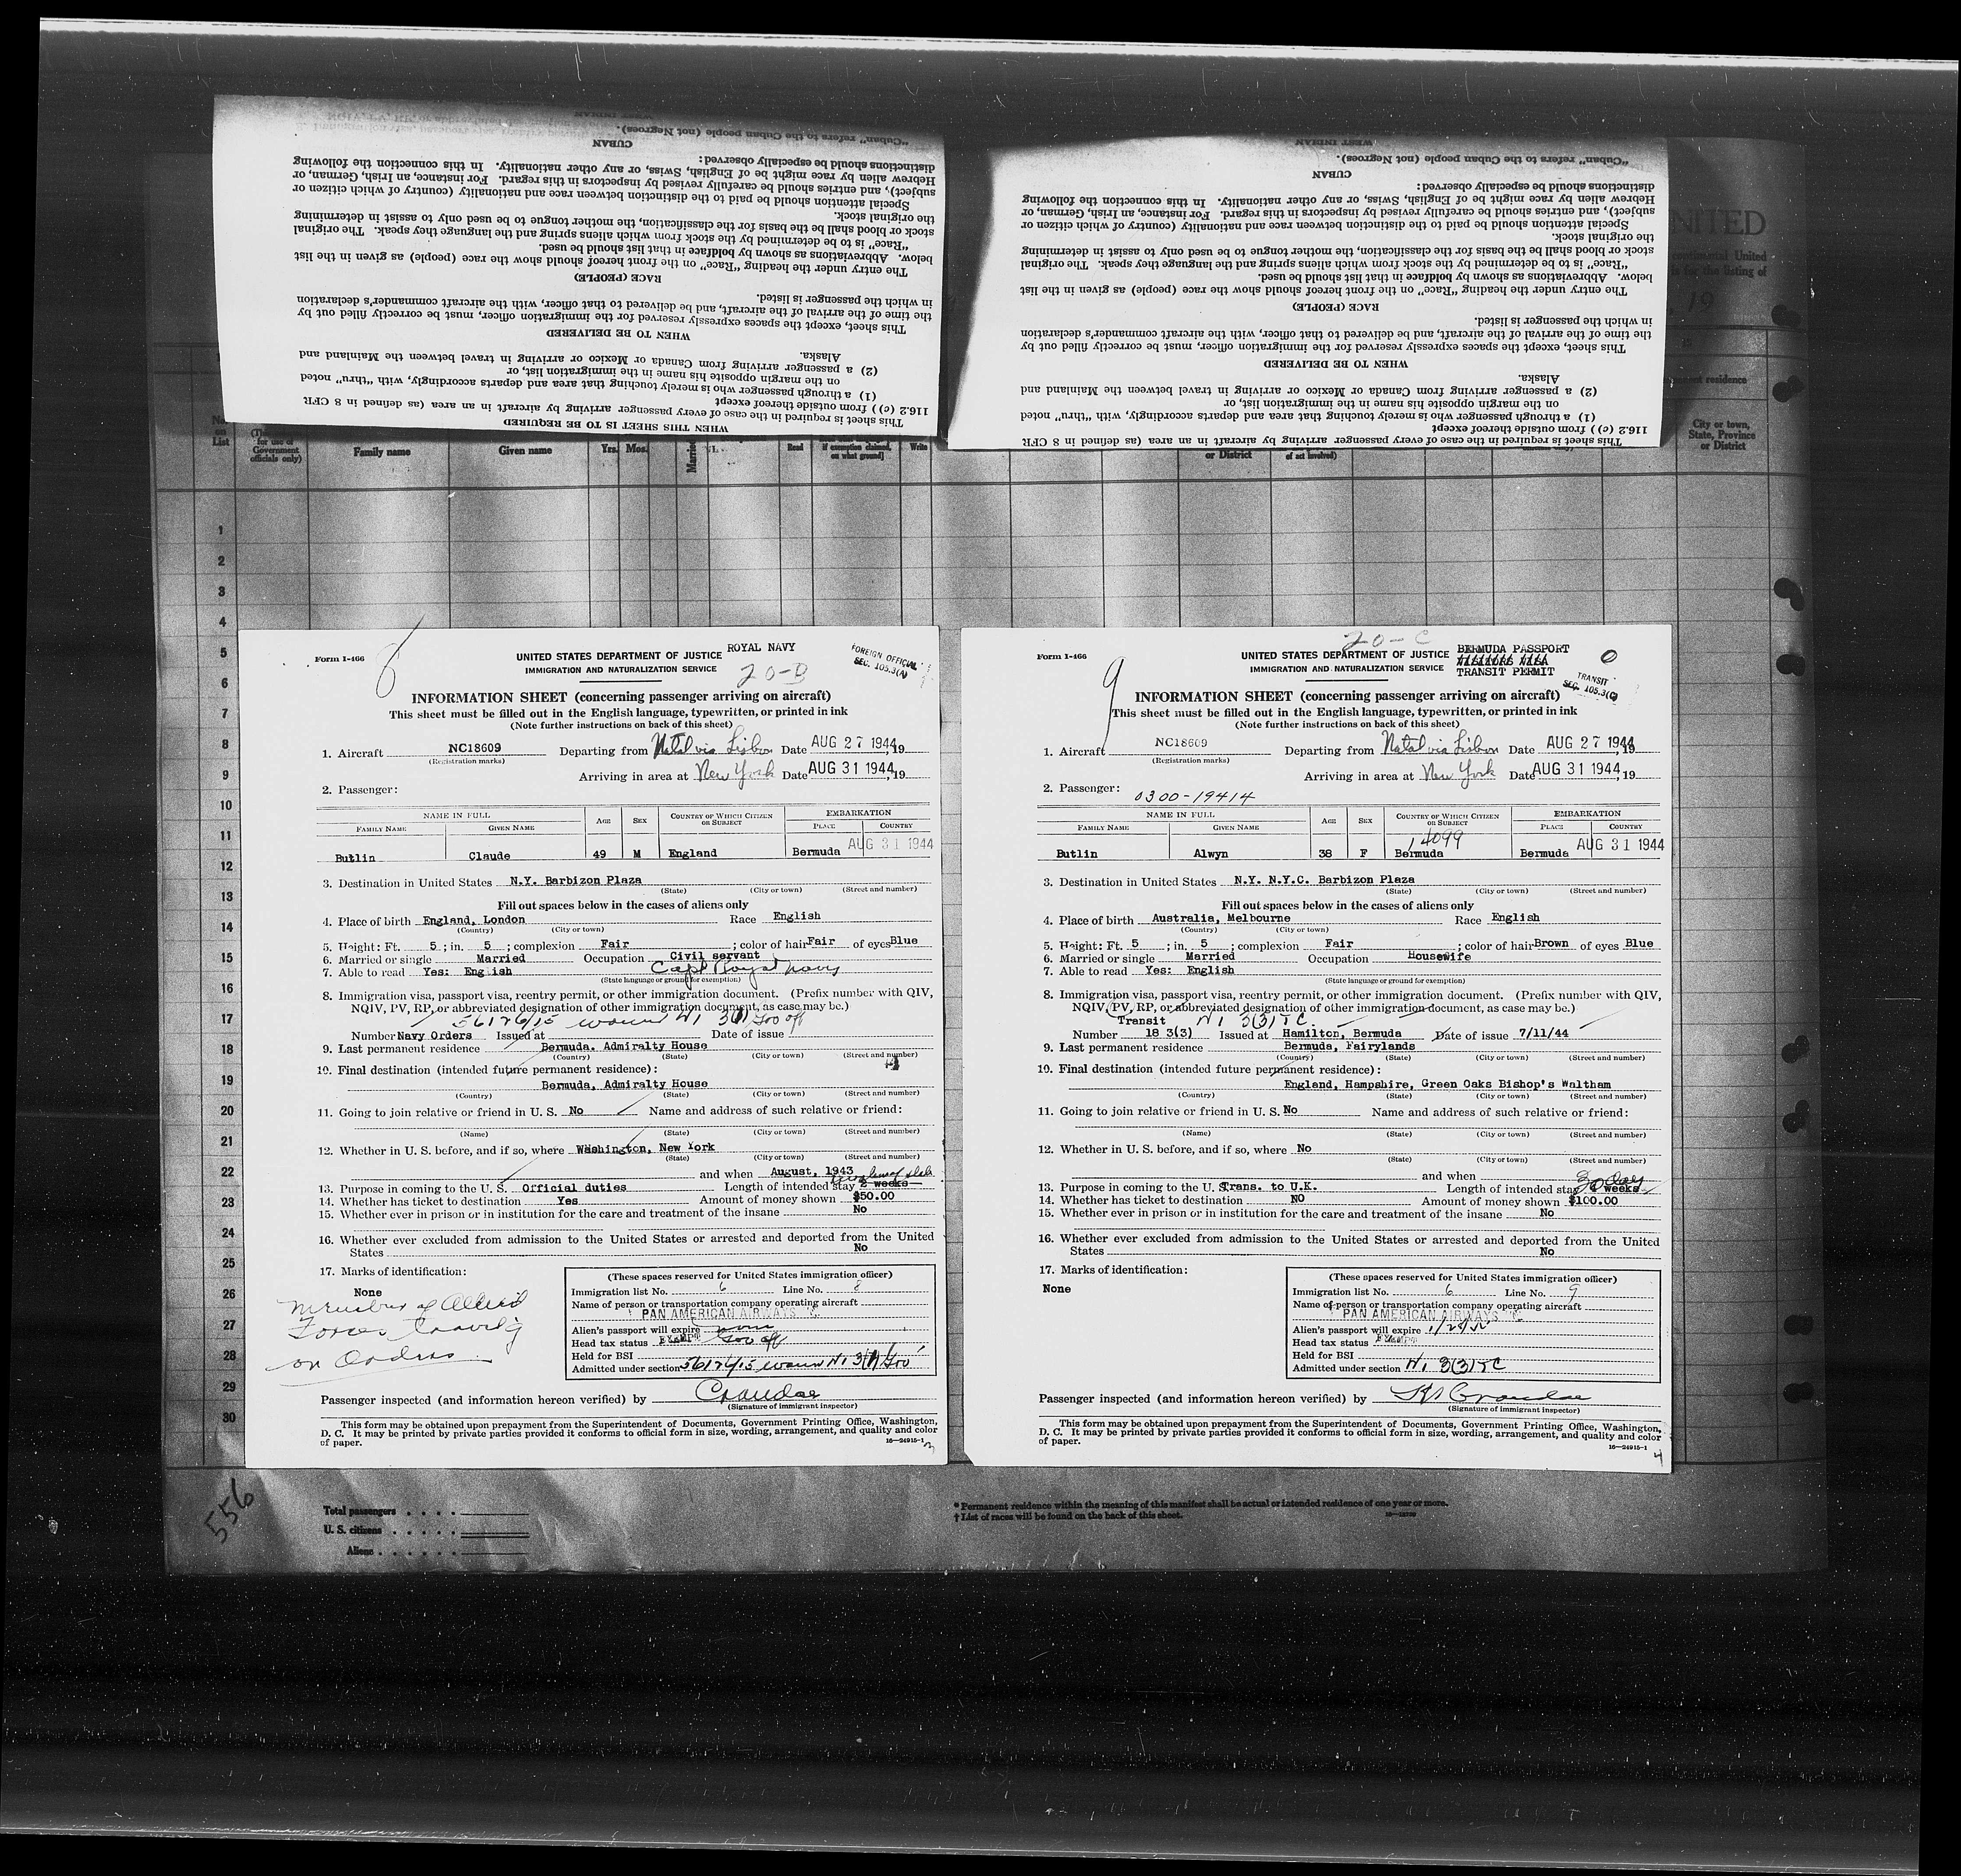 "Cuban" refers to the Cuban people (not Negroes).
CUBAN
distinctions should be especially observed:
Hebrew alien by race might be of English, Swiss, or any other nationality. In this connection the following
subject), and entries should be carefully revised by inspectors in this regard. For instance, an Irish, German, or
Special attention should be paid to the distinction between race and nationality (country of which citizen or
the original stock.
stock or blood shall be the basis for the classification, the mother tongue to be used only to assist in determining
"Race" is to be determined by the stock from which aliens spring and the language they speak. The original
below. Abbreviations as shown by boldface in that list should be used.
The entry under the heading "Race" on the front hereof should show the race (people) as given in the list
RACE (PEOPLE)
in which the passenger is listed.
the time of the arrival of the aircraft, and be delivered to that officer, with the aircraft commander's declaration
This sheet, except the spaces expressly reserved for the immigration officer, must be correctly filled out by
WHEN TO BE DELIVERED
Alaska.
(2) a passenger arriving from Canada or Mexico or arriving in travel between the Mainland and
on the margin opposite his name in the immigration list, or
(1) a through passenger who is merely touching that area and departs accordingly, with "thru" noted
116.2 (c)) from outside thereof except
This sheet is required in the case of every passenger arriving by aircraft in an area (as defined in 8 CFR
WHEN THIS SHEET IS TO BE REQUIRED
WEST INDIAN
"Cuban" refers to the Cuban people (not Negroes).
CUBAN
distinctions should be especially observed:
Hebrew alien by race might be of English, Swiss, or any other nationality. In this connection the following
subject), and entries should be carefully revised by inspectors in this regard. For instance, an Irish, German, or
Special attention should be paid to the distinction between race and nationality (country of which citizen or
the original stock.
stock or blood shall be the basis for the classification, the mother tongue to be used only to assist in determining
"Race" is to be determined by the stock from which aliens spring and the language they speak. The original
below. Abbreviations as shown by boldface in that list should be used.
The entry under the heading "Race" on the front hereof should show the race (people) as given in the list
RACE (PEOPLE)
in which the passenger is listed.
the time of the arrival of the aircraft, and be delivered to that officer, with the aircraft commander's declaration
This sheet, except the spaces expressly reserved for the immigration officer, must be correctly filled out by
WHEN TO BE DELIVERED
Alaska.
(2) a passenger arriving from Canada or Mexico or arriving in travel between the Mainland and
on the margin opposite his name in the immigration list, or
(1) a through passenger who is merely touching that area and departs accordingly, with "thru" noted
116.2 (c)) from outside thereof except
This sheet is required in the case of every passenger arriving by aircraft in an area (as defined in 8 CFR
NITED
continental United
is for the listing of
, 19
residence
City or town, State, Province or District
No. on List
for use of Government officials only)
Family name
Given name
Yrs. Mos.
Married
Read
if exemption claimed, on what ground]
Write
or District
of act involved)
1
2
3
4
5
6
7
8
9
10
11
12
13
14
15
16
17
18
19
20
21
22
23
24
25
26
27
28
29
30
8
Form I-466
UNITED STATES DEPARTMENT OF JUSTICE ROYAL NAVY
IMMIGRATION AND NATURALIZATION SERVICE 20-B
FOREIGN OFFICIAL
SEC. 105.3(A)
INFORMATION SHEET (concerning passenger arriving on aircraft)
This sheet must be filled out in the English language, typewritten, or printed in ink
(Note further instructions on back of this sheet)
1. Aircraft NC18609 Departing from Natal via Lisbon Date AUG 27 1944, 19
(Registration marks)
Arriving in area at New York Date AUG 31 1944, 19
2. Passenger:
NAME IN FULL AGE SEX COUNTRY OF WHICH CITIZEN OR SUBJECT EMBARKATION
FAMILY NAME GIVEN NAME PLACE COUNTRY
Butlin Claude 49 M England Bermuda AUG 31 1944
3. Destination in United States N.Y. Barbizon Plaza
(State) (City or town) (Street and number)
Fill out spaces below in the cases of aliens only
4. Place of birth England, London Race English
(Country) (City or town)
5. Height: Ft. 5; in. 5; complexion Fair; color of hair Fair of eyes Blue
6. Married or single Married Occupation Civil servant
Capt Royal Navy
7. Able to read Yes: Eng ish
(State language or ground for exemption)
8. Immigration visa, passport visa, reentry permit, or other immigration document. (Prefix number with QIV,
NQIV, PV, RP, or abbreviated designation of other immigration document, as case may be.)
Number Navy Orders Issued at Date of issue
9. Last permanent residence Bermuda. Admiralty House
(Country) (State) (City or town) (Street and number)
10. Final destination (intended future permanent residence):
Bermuda, Admiralty House
(Country) (State) (City or town) (Street and number)
11. Going to join relative or friend in U. S. No Name and address of such relative or friend:
(Name) (State) (City or town) (Street and number)
12. Whether in U. S. before, and if so, where Washington, New York
(State) (City or town) (Street and number)
and when August, 1943
13. Purpose in coming to the U. S. Official duties Length of intended stay 2 weeks
14. Whether has ticket to destination Yes Amount of money shown $50.00
15. Whether ever in prison or in institution for the care and treatment of the insane No
16. Whether ever excluded from admission to the United States or arrested and deported from the United
States No
17. Marks of identification:
None
Member of Allied
Forces traveling
on Orders
(These spaces reserved for United States immigration officer)
Immigration list No. 6 Line No. 8
Name of person or transportation company operating aircraft
PAN AMERICAN AIRWAYS
Alien's passport will expire
Head tax status EXEMPT Gov off
Held for BSI
Admitted under section
Passenger inspected (and information hereon verified) by Crandae
(Signature of immigrant inspector)
This form may be obtained upon prepayment from the Superintendent of Documents, Government Printing Office, Washington,
D. C. It may be printed by private parties provided it conforms to official form in size, wording, arrangement, and quality and color
of paper.
16—24915-1
3
9
20-C
Form I-466
UNITED STATES DEPARTMENT OF JUSTICE BERMUDA PASSPORT
IMMIGRATION AND NATURALIZATION SERVICE TRANSIT PERMIT
TRANSIT
SEC. 105.3(C)
INFORMATION SHEET (concerning passenger arriving on aircraft)
This sheet must be filled out in the English language, typewritten, or printed in ink
(Note further instructions on back of this sheet)
1. Aircraft NC18609 Departing from Natal via Lisbon Date AUG 27 1944, 19
(Registration marks)
Arriving in area at New York Date AUG 31 1944, 19
2. Passenger: 0300-19414
NAME IN FULL AGE SEX COUNTRY OF WHICH CITIZEN OR SUBJECT EMBARKATION
FAMILY NAME GIVEN NAME PLACE COUNTRY
14099
Butlin Alwyn 38 F Bermuda Bermuda AUG 31 1944
3. Destination in United States N.Y. N.Y.C. Barbizon Plaza
(State) (City or town) (Street and number)
Fill out spaces below in the cases of aliens only
4. Place of birth Australia, Melbourne Race English
(Country) (City or town)
5. Height: Ft. 5; in. 5; complexion Fair; color of hair Brown of eyes Blue
6. Married or single Married Occupation Housewife
7. Able to read Yes: English
(State language or ground for exemption)
8. Immigration visa, passport visa, reentry permit, or other immigration document. (Prefix number with QIV,
NQIV, PV, RP, or abbreviated designation of other immigration document, as case may be.)
Transit
Number 18 3(3) Issued at Hamilton, Bermuda Date of issue 7/11/44
9. Last permanent residence Bermuda, Fairylands
(Country) (State) (City or town) (Street and number)
10. Final destination (intended future permanent residence):
England, Hampshire, Green Oaks Bishop's Waltham
(Country) (State) (City or town) (Street and number)
11. Going to join relative or friend in U. S. No Name and address of such relative or friend:
(Name) (State) (City or town) (Street and number)
12. Whether in U. S. before, and if so, where No
(State) (City or town) (Street and number)
and when
30 days
13. Purpose in coming to the U. S. Trans. to U.K. Length of intended stay weeks
14. Whether has ticket to destination NO Amount of money shown $100.00
15. Whether ever in prison or in institution for the care and treatment of the insane No
16. Whether ever excluded from admission to the United States or arrested and deported from the United
States No
17. Marks of identification:
None
(These spaces reserved for United States immigration officer)
Immigration list No. 6 Line No. 9
Name of person or transportation company operating aircraft
PAN AMERICAN AIRWAYS
Alien's passport will expire
Head tax status EXEMPT
Held for BSI
Admitted under section
Passenger inspected (and information hereon verified) by
(Signature of immigrant inspector)
This form may be obtained upon prepayment from the Superintendent of Documents, Government Printing Office, Washington,
D. C. It may be printed by private parties provided it conforms to official form in size, wording, arrangement, and quality and color
of paper.
16—24915-1
4
556
Total passengers
U. S. citizens
Aliens
* Permanent residence within the meaning of this manifest shall be actual or intended residence of one year or more.
† List of races will be found on the back of this sheet.